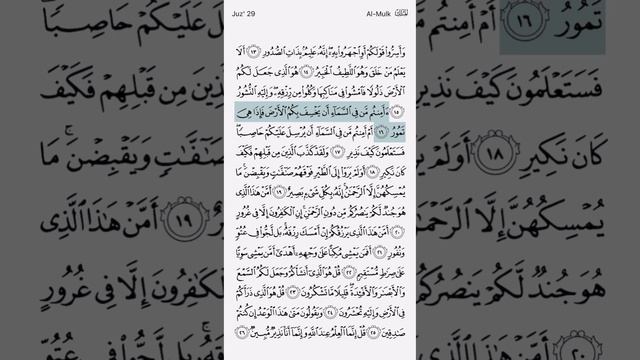 Juz' 29
Al-Mulk
وَأَسِرُّوا۟ قَوْلَكُمْ أَوِ ٱجْهَرُوا۟ بِهِۦٓ إِنَّهُۥ عَلِيمٌۢ بِذَاتِ ٱلصُّدُورِ ١٣ أَلَا
يَعْلَمُ مَنْ خَلَقَ وَهُوَ ٱللَّطِيفُ ٱلْخَبِيرُ ١٤ هُوَ ٱلَّذِى جَعَلَ لَكُمُ
ٱلْأَرْضَ ذَلُولًا فَٱمْشُوا۟ فِى مَنَاكِبِهَا وَكُلُوا۟ مِن رِّزْقِهِۦ وَإِلَيْهِ ٱلنُّشُورُ
١٥ ءَأَمِنتُم مَّن فِى ٱلسَّمَآءِ أَن يَخْسِفَ بِكُمُ ٱلْأَرْضَ فَإِذَا هِىَ
تَمُورُ ١٦ أَمْ أَمِنتُم مَّن فِى ٱلسَّمَآءِ أَن يُرْسِلَ عَلَيْكُمْ حَاصِبًا
فَسَتَعْلَمُونَ كَيْفَ نَذِيرِ ١٧ وَلَقَدْ كَذَّبَ ٱلَّذِينَ مِن قَبْلِهِمْ فَكَيْفَ
كَانَ نَكِيرِ ١٨ أَوَلَمْ يَرَوْا۟ إِلَى ٱلطَّيْرِ فَوْقَهُمْ صَٰٓفَّٰتٍ وَيَقْبِضْنَ مَا
يُمْسِكُهُنَّ إِلَّا ٱلرَّحْمَٰنُ إِنَّهُۥ بِكُلِّ شَىْءٍۭ بَصِيرٌ ١٩ أَمَّنْ هَٰذَا ٱلَّذِى
هُوَ جُندٌ لَّكُمْ يَنصُرُكُم مِّن دُونِ ٱلرَّحْمَٰنِ إِنِ ٱلْكَٰفِرُونَ إِلَّا فِى غُرُورٍ
٢٠ أَمَّنْ هَٰذَا ٱلَّذِى يَرْزُقُكُمْ إِنْ أَمْسَكَ رِزْقَهُۥ بَل لَّجُّوا۟ فِى عُتُوٍّ
وَنُفُورٍ ٢١ أَفَمَن يَمْشِى مُكِبًّا عَلَىٰ وَجْهِهِۦٓ أَهْدَىٰٓ أَمَّن يَمْشِى سَوِيًّا
عَلَىٰ صِرَٰطٍ مُّسْتَقِيمٍ ٢٢ قُلْ هُوَ ٱلَّذِىٓ أَنشَأَكُمْ وَجَعَلَ لَكُمُ ٱلسَّمْعَ
وَٱلْأَبْصَٰرَ وَٱلْأَفْـِٔدَةَ قَلِيلًا مَّا تَشْكُرُونَ ٢٣ قُلْ هُوَ ٱلَّذِى ذَرَأَكُمْ
فِى ٱلْأَرْضِ وَإِلَيْهِ تُحْشَرُونَ ٢٤ وَيَقُولُونَ مَتَىٰ هَٰذَا ٱلْوَعْدُ إِن كُنتُمْ
صَٰدِقِينَ ٢٥ قُلْ إِنَّمَا ٱلْعِلْمُ عِندَ ٱللَّهِ وَإِنَّمَآ أَنَا۠ نَذِيرٌ مُّبِينٌ ٢٦
تَمُورُ ١٦ أَمْ أَمِنتُم
فَسَتَعْلَمُونَ كَيْفَ نَذِيرِ
كَانَ نَكِيرِ ١٨ أَوَلَمْ
يُمْسِكُهُنَّ إِلَّا ٱلرَّحْمَٰنُ
هُوَ جُندٌ لَّكُمْ يَنصُرُكُم
عَلَيْكُمْ حَاصِبًا
مِن قَبْلِهِمْ فَكَيْفَ
صَٰٓفَّٰتٍ وَيَقْبِضْنَ مَا
١٩ أَمَّنْ هَٰذَا ٱلَّذِى
ٱلْكَٰفِرُونَ إِلَّا فِى غُرُورٍ